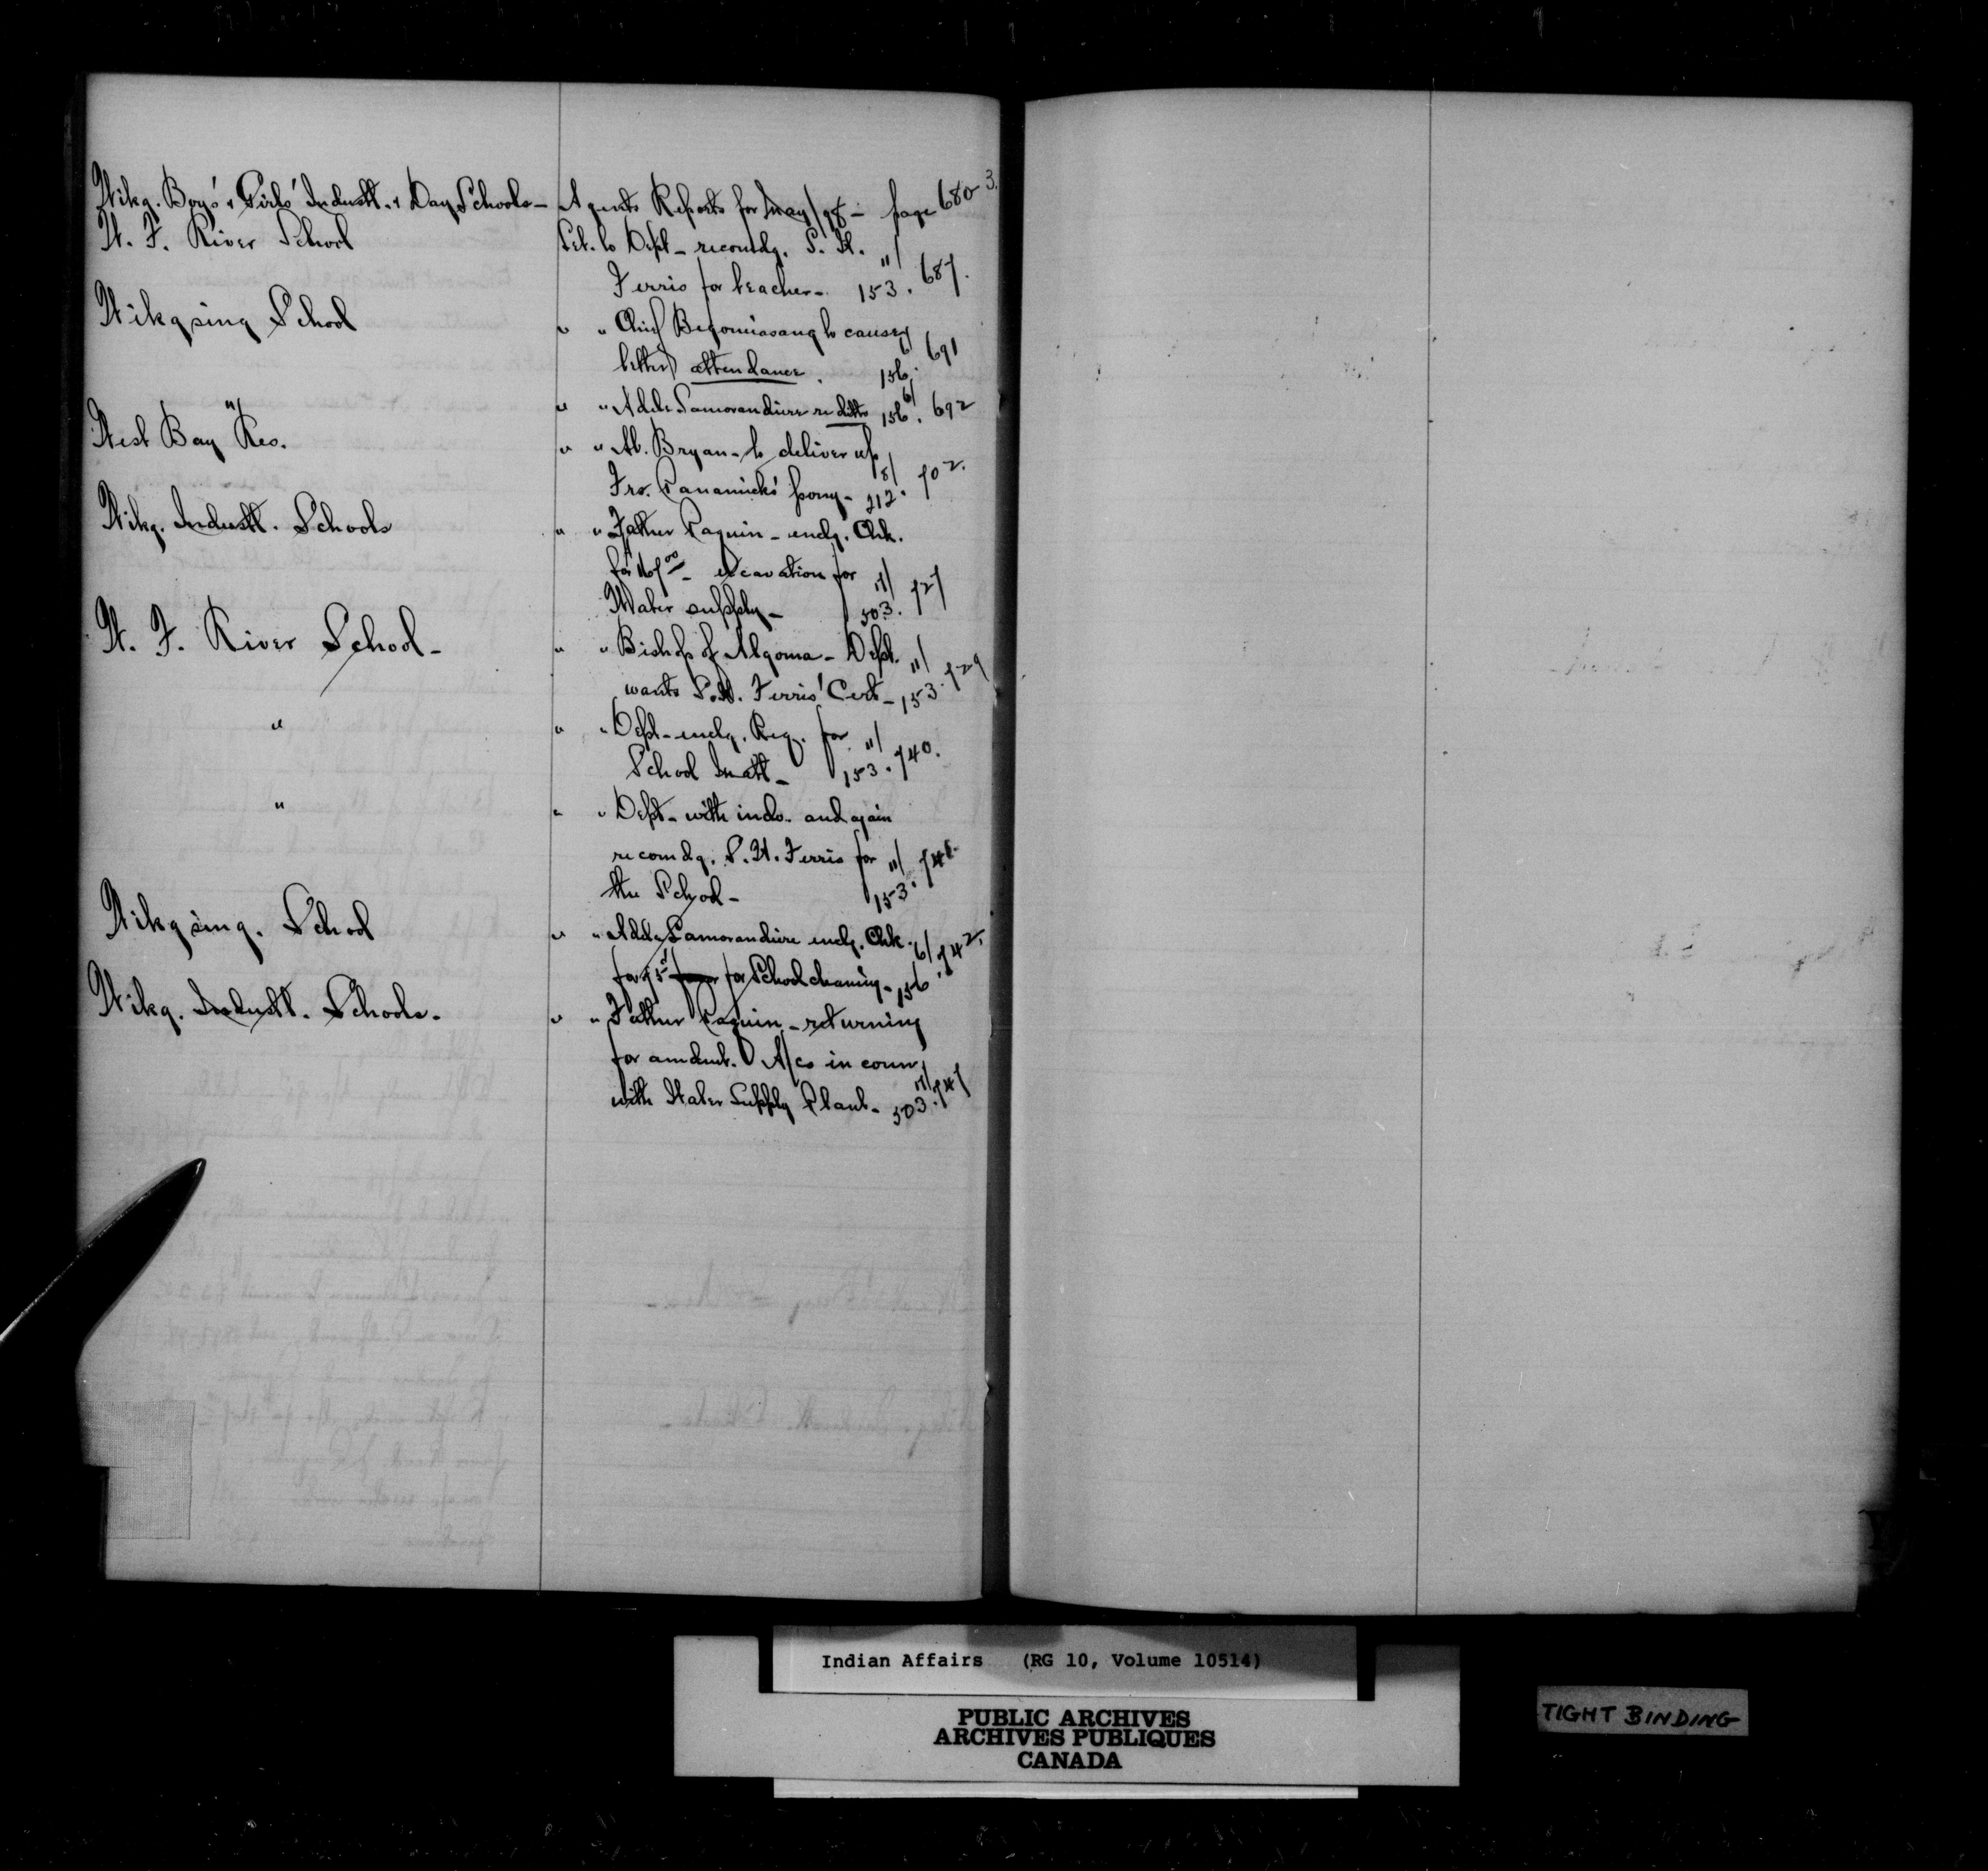 Wikg. Boys' & Girls' Industl. & Day Schools - Agents Reports for May/98 - page 680-3.
W. F. River School Let. to Dept - recomdg. S. H. 11/
Ferris for teacher - 153. 687.
Wikgsing School " " Chief to cause
better attendance. 6/156. 691
" " " Adele Lamorandiere re ditto 6/156. 692
West Bay Res. " " Ab. Bryan - to deliver up
Frs. pony - 18/212. 702.
Wikg. Industl. Schools " " Father Paquin - encg. Chk.
for excavation for 17/
Water supply - 503. 727
W. F. River School - " " Bishop of Algoma - Dept. 11/
wants S.H. Ferris' Cert - 153. 729
" " " Dept - encg. Req. for 11/
School Matl - 153. 740.
" " " Dept - with indo. and again
recomdg. S. H. Ferris for 11/
the School - 153. 741.
Wikgsing. School " " Adele Lamorandiere encg. Chk. 6/ 742.
for for School cleaning - 156
Wikg. Industl. Schools. " " Father Paquin - returning
for amdmt. A/cs in conn.
with Water Supply Plant - 17/503. 747
Indian Affairs (RG 10, Volume 10514)
PUBLIC ARCHIVES
ARCHIVES PUBLIQUES
CANADA
TIGHT BINDING